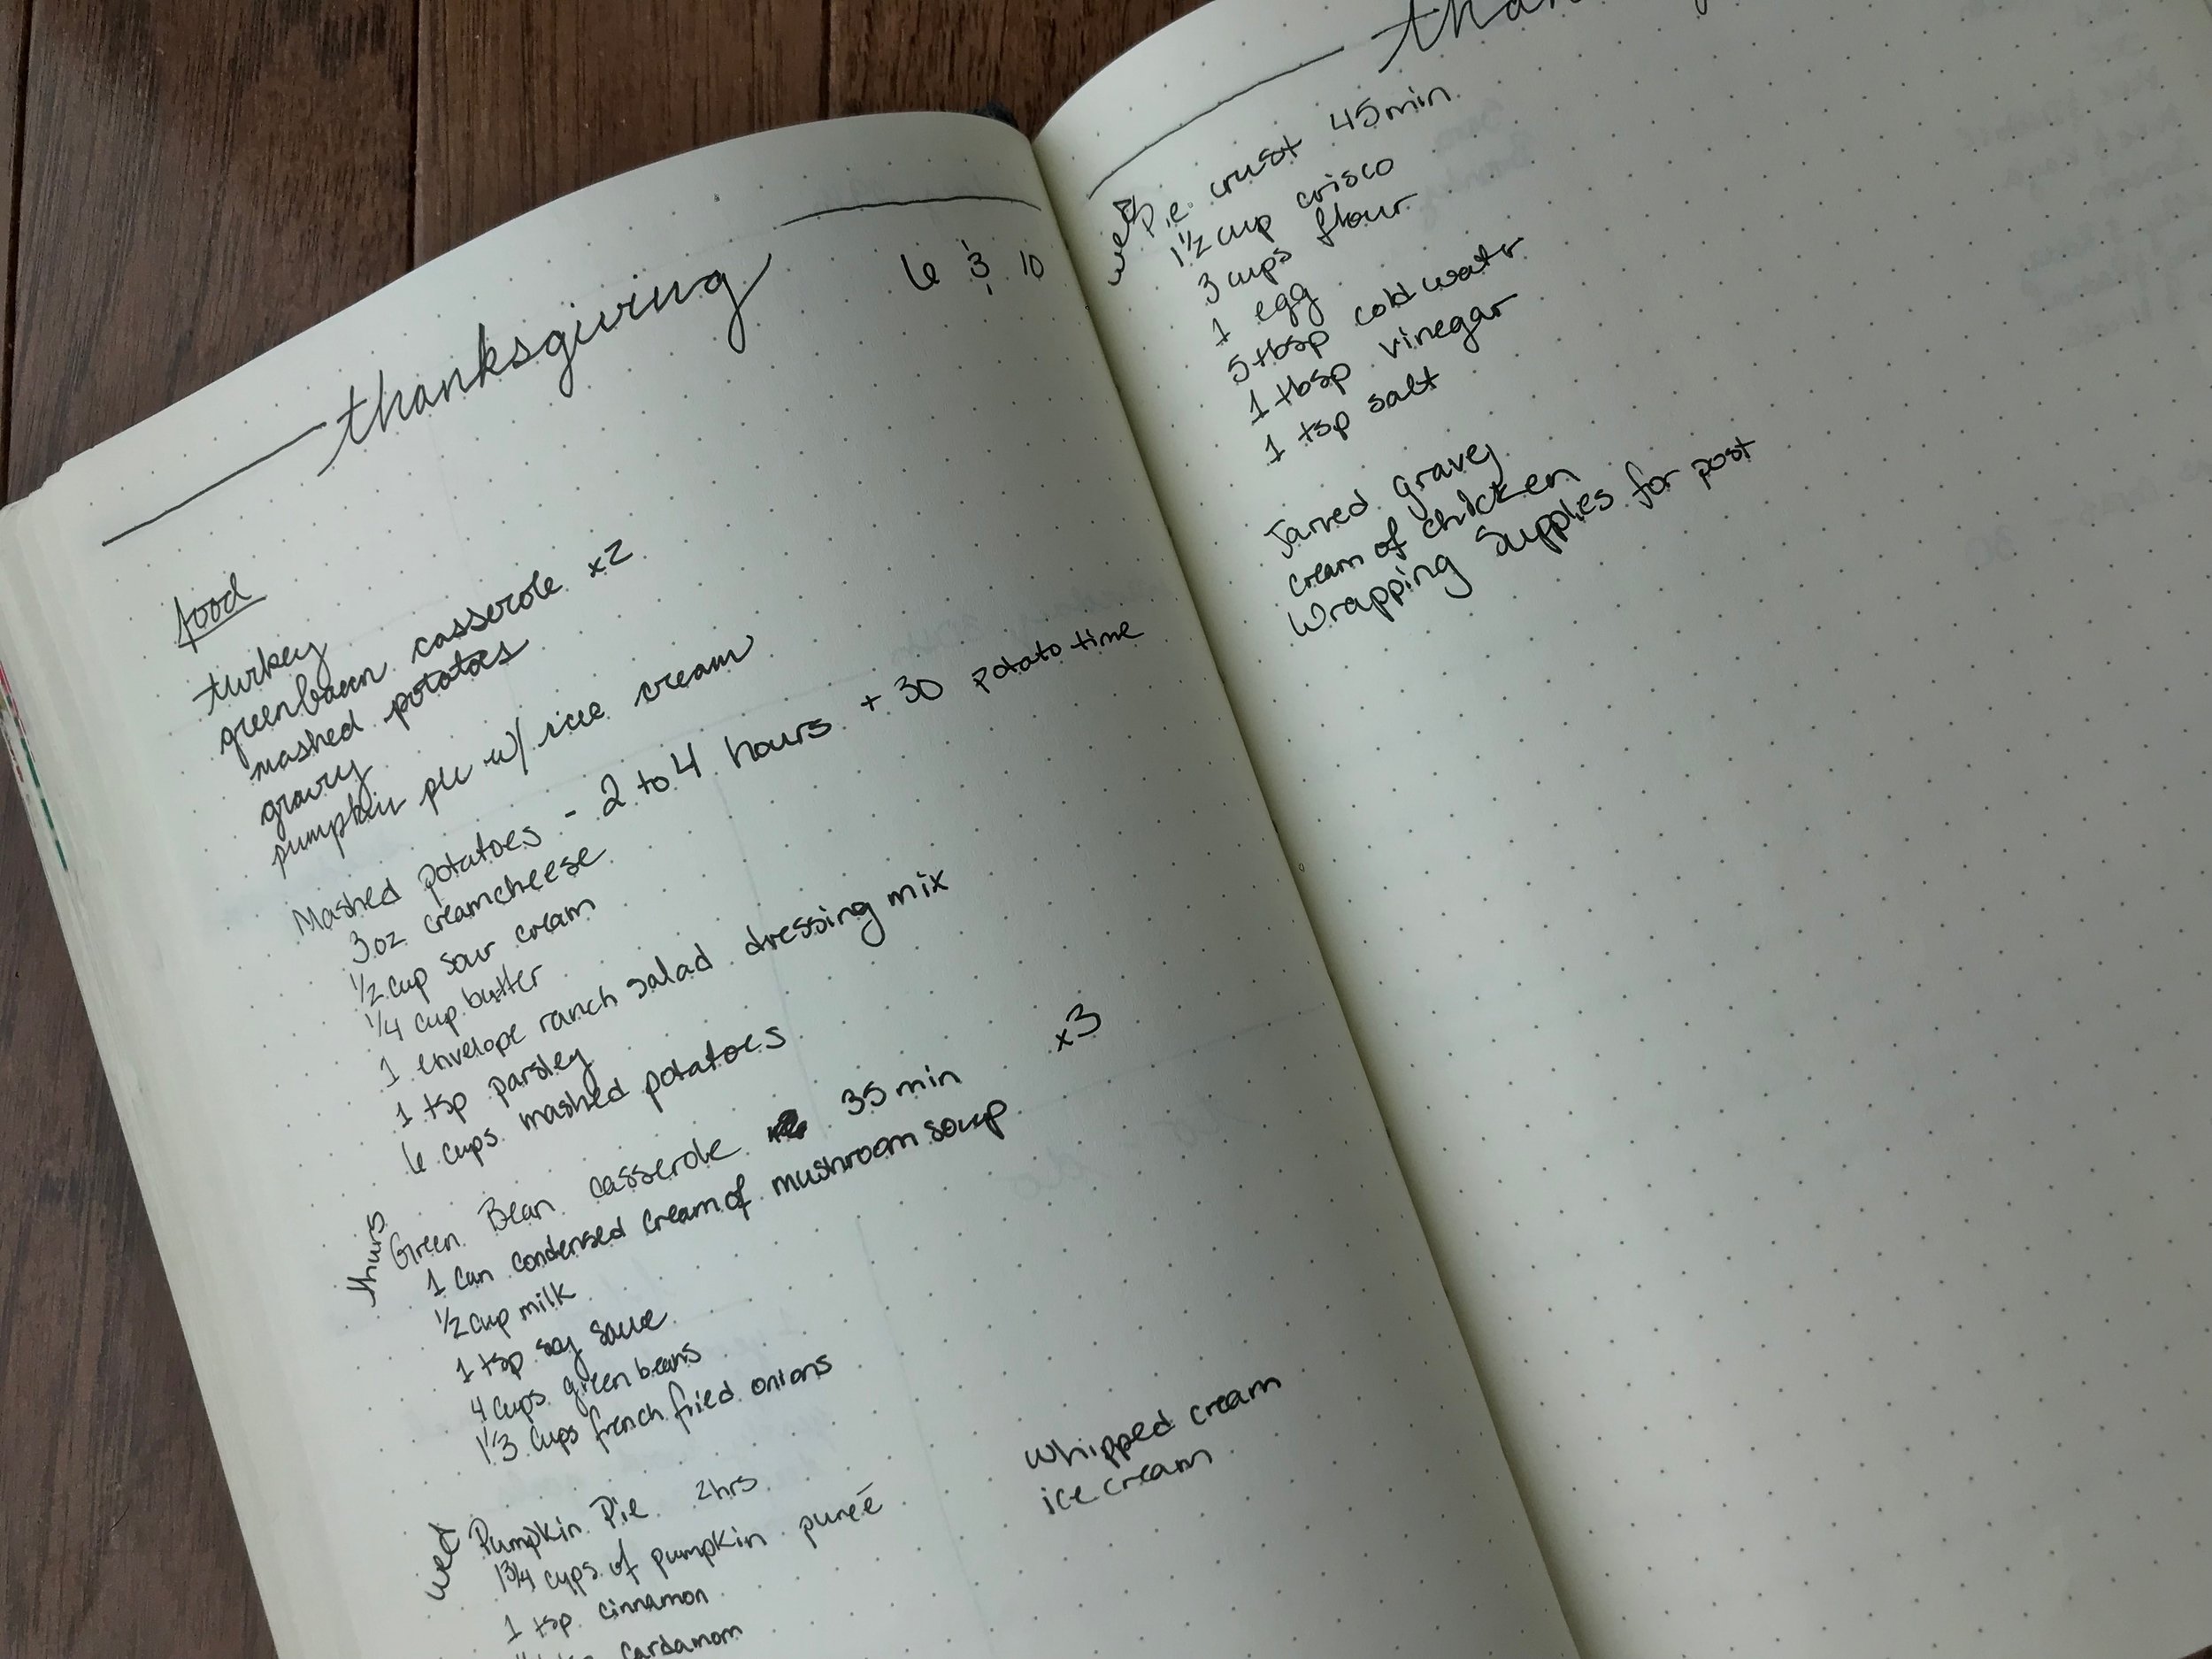 thanksgiving
6 & 10
food
turkey
greenbean casserole x2
mashed potatoes
gravy
pumpkin pie w/ ice cream
Mashed potatoes - 2 to 4 hours + 30 potato time
3 oz creamcheese
1/2 cup sour cream
1/4 cup butter
1 envelope ranch salad dressing mix
1 tsp parsley
6 cups mashed potatoes
thurs
Green Bean casserole 35 min x3
1 can condensed cream of mushroom soup
1/2 cup milk
1 tsp soy sauce
4 cups green beans
1 1/3 cups french fried onions
wed
Pumpkin Pie 2hrs
1 3/4 cups of pumpkin pureé
1 tsp cinnamon
cardamom
whipped cream
ice cream
wed
Pie crust 45 min
1 1/2 cup crisco
3 cups flour
1 egg
5 tbsp cold water
1 tbsp vinegar
1 tsp salt
Jarred gravey
cream of chicken
Wrapping Supplies for post